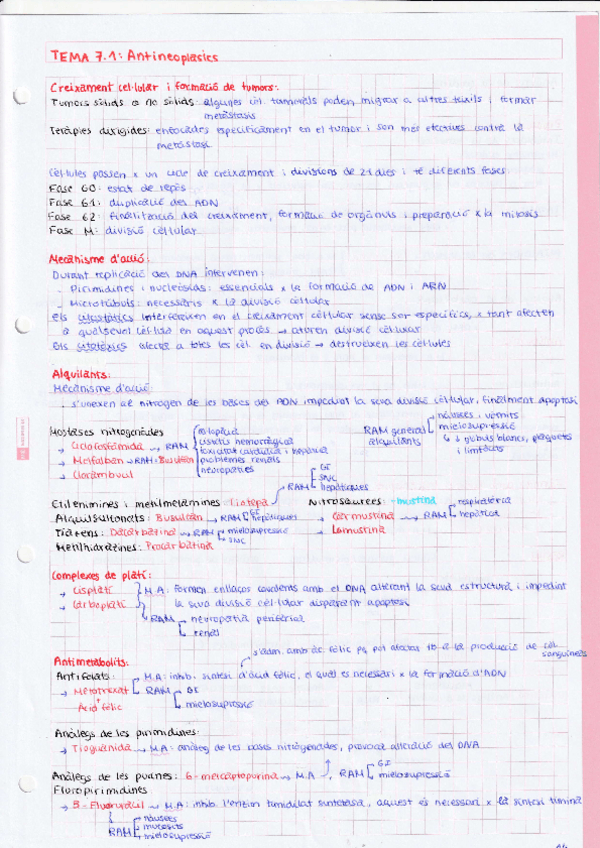 TEMA 7.1: Antineoplasics
Creixament cel·lular i formació de tumors:
Tumors sòlids o no sòlids: algunes cèl. tumorals poden migrar a altres teixits i formar
metàstasis
Teràpies dirigides: enfocades específicament en el tumor i son més efectives contra la
metàstasi
Cèl·lules passen x un cicle de creixament i divisions de 21 dies i té diferents fases
Fase G0: estat de repòs
Fase G1: duplicació del ADN
Fase G2: finalització del creixament, formació de orgànuls i preparació x la mitosis
Fase M: divisió cèl·lular
Mecanisme d'acció:
Durant replicació del DNA intervenen:
- Pirimidines i nucleòsids: essencials x la formació de ADN i ARN
- Microtúbuls: necessaris x la divisió cèl·lular
Els citostàtics interfereixen en el creixament cèl·lular sense ser específics, x tant afecten
a qualsevol cèl·lula en aquest procés → aturen divisió cèl·lular
Els citotòxics afecta a totes les cèl. en divisió → destrueixen les cèl·lules
Alquilants:
Mecanisme d'acció
. s'unexen al nitrogen de les bases del ADN impedint la seva divisió cèl·lular, finalment apoptosi
Mostases nitrogenades
→ Ciclofosfamida → RAM
cistitis hemorràgica
toxicitat cardíaca i hepàtica
problemes renals
neuropaties
→ Melfalban → RAM: Busulfan
→ Clorambucil
RAM general alquilants
nàusees i vòmits
mielosupressió
↓ glòbuls blancs, plaquetes
i limfòcits
RAM
GI
SNC
hepàtiques
Etilenimines i metilmelamines: Tiotepa
Nitrosaurees: -mustina
Alquilsulfonats: Busulfan → RAM
GI
hepàtiques
→ Carmustina → RAM
respiratòria
hepàtica
Triazens: Dacarbatina → RAM
mielosupressió
SNC
→ Lomustina
Metilhidrazines: Procarbatina
Complexes de platí:
→ Cisplatí
→ Carboplatí
M.A: Formen enllaços covalents amb el DNA alterant la seva estructura i impedint
la seva divisió cèl·lular disparant apoptosi
RAM
neuropatia perifèrica
renal
s'adm. amb àc. fòlic pq pot afectar tb a la producció de cèl.
sanguínees
Antimetabolits:
Antifolats:
M.A: inhib. síntesi d'àcid fòlic, el qual es necessari x la formació d'ADN
→ Metotrexat
+
Àcid fòlic
RAM
GI
mielosupressió
Anàlegs de les pirimidines:
→ Tioguanida → M.A: anàleg de les bases nitrogenades, provoca alteració del DNA
Anàlegs de les purines: 6-mercaptopurina → M.A , RAM
GI
mielosupressió
Fluropirimidines
→ 5-Fluoruracil → M.A: inhib. l'enzim timidilat sintetasa, aquest es necessari x la síntesi timina
RAM
nàusees
mucositis
mielosupressió